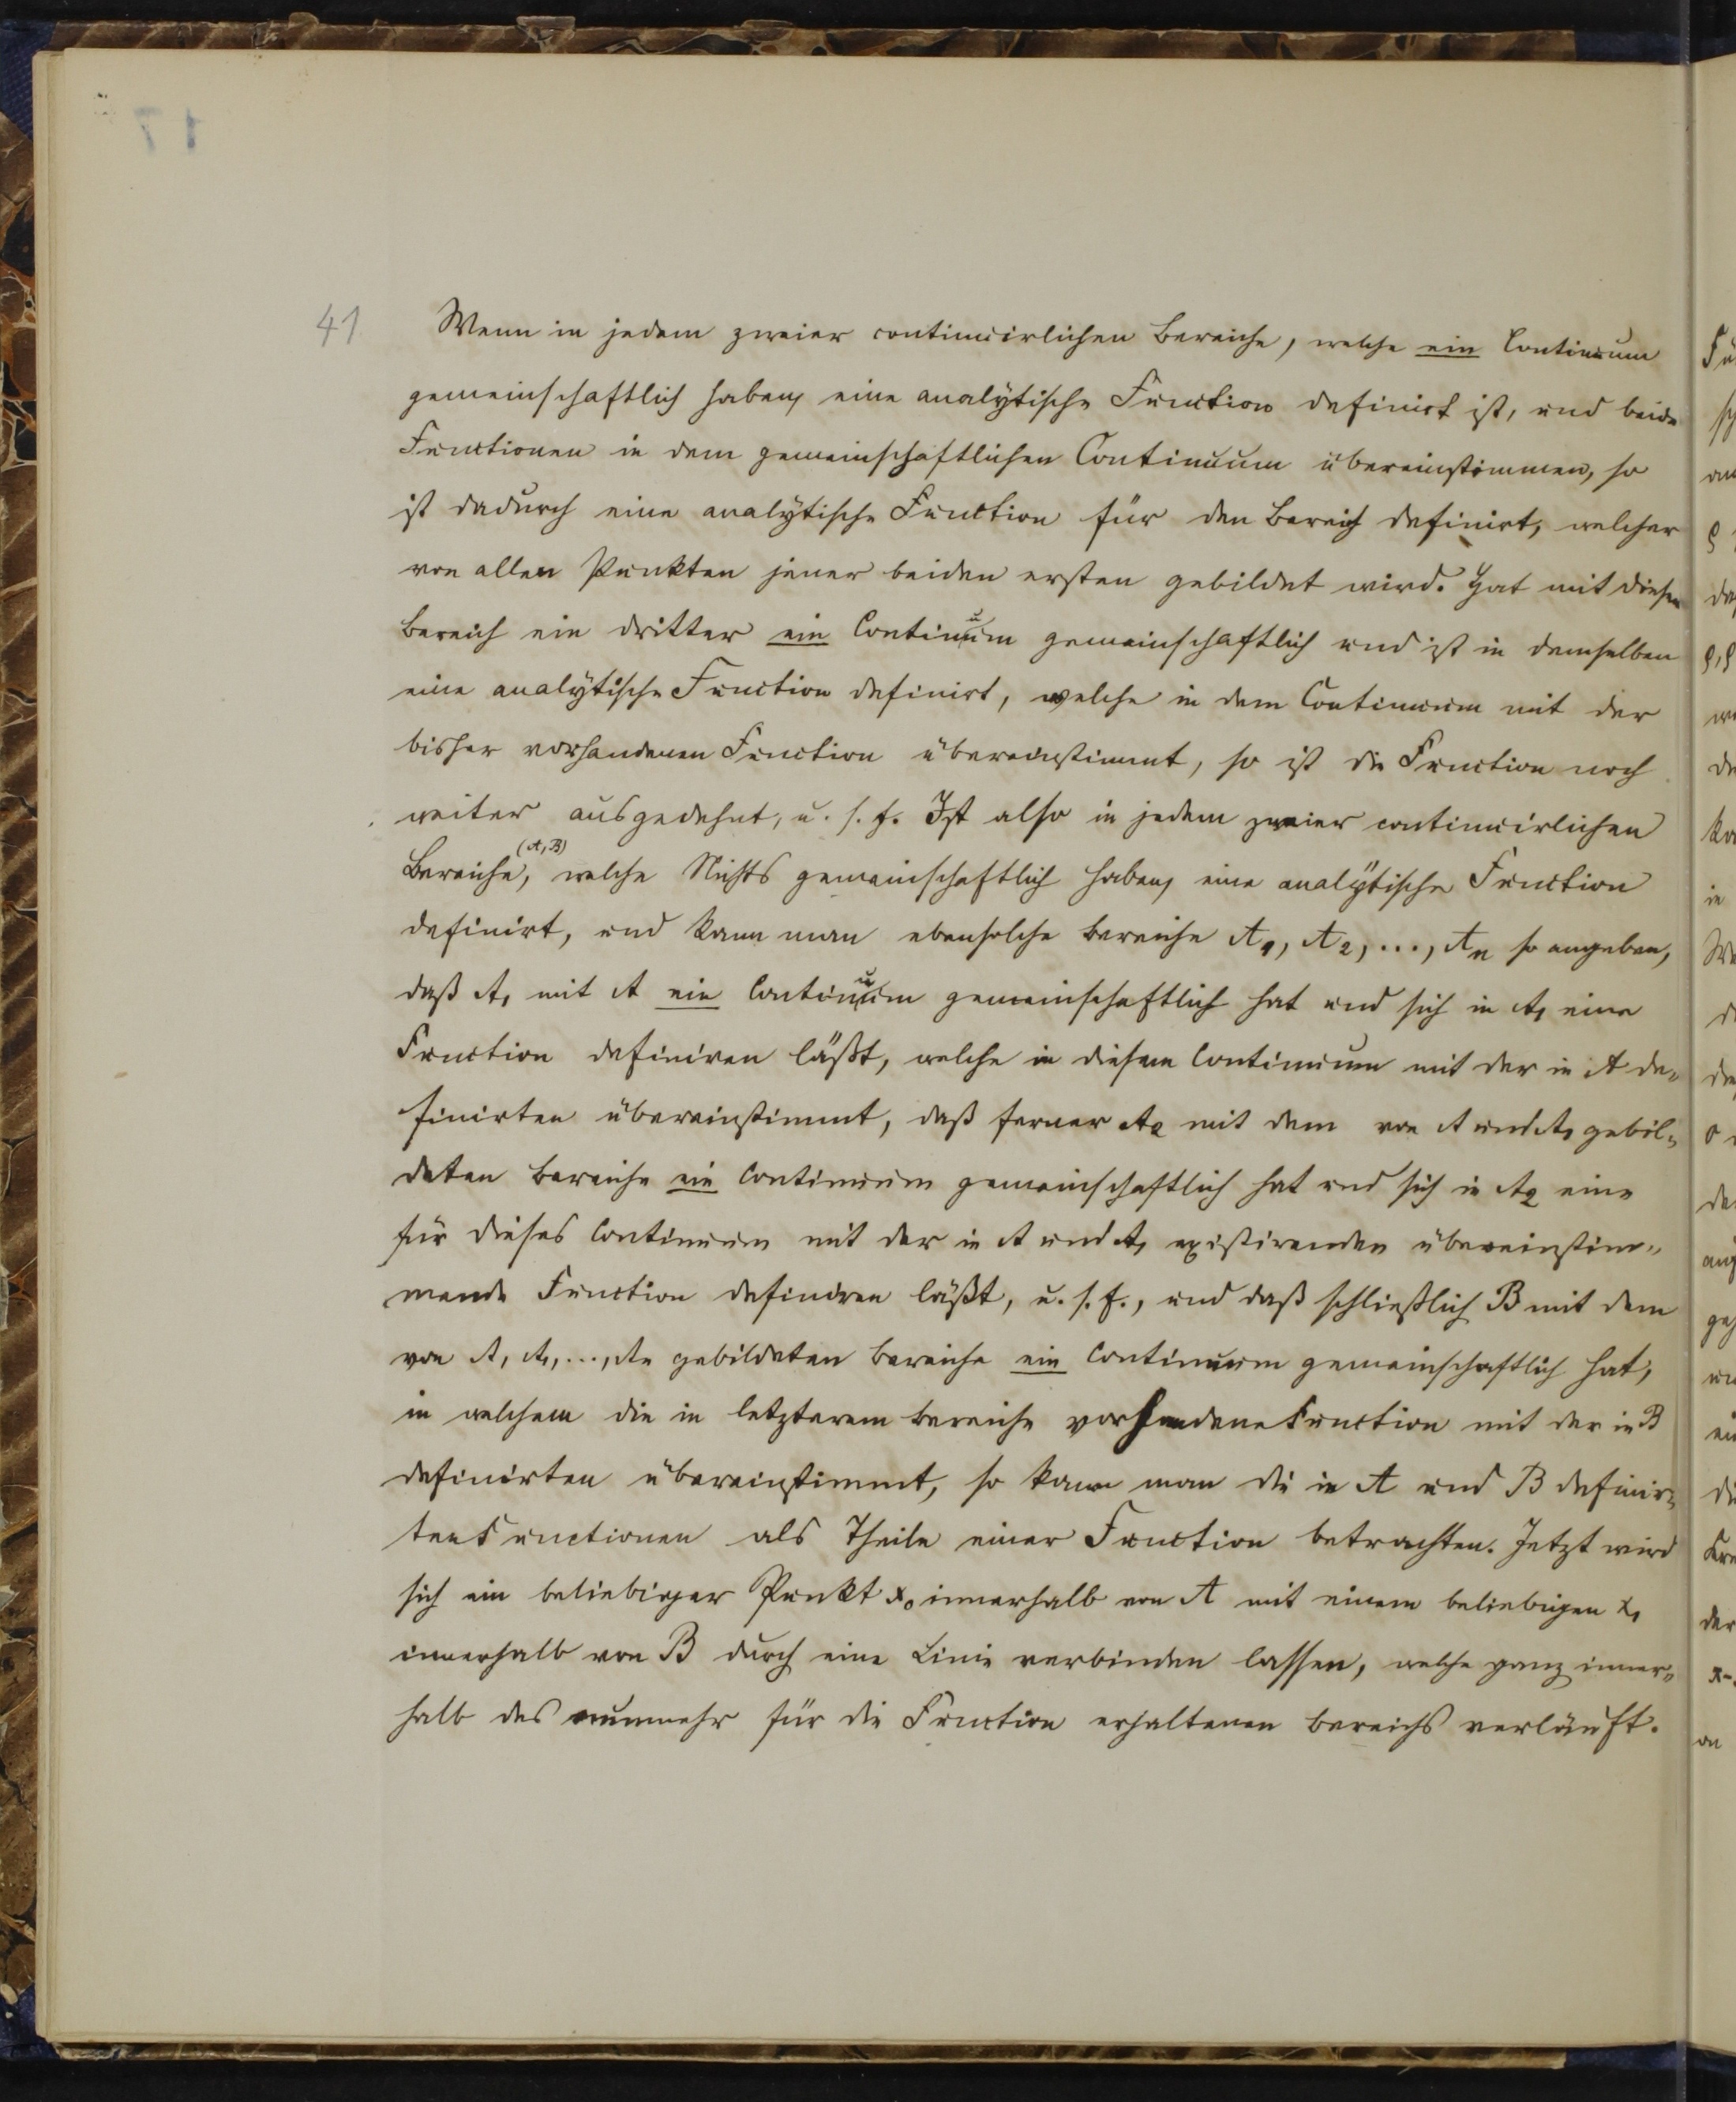 41
Wenn in jedem zweier continuirlichen Bereiche, welche ein Continuum
gemeinschaftlich haben, eine analytische Function definirt ist, und beide
Functionen in dem gemeinschaftlichen Continuum übereinstimmen, so
ist dadurch eine analytische Function für den Bereich definirt, welcher
von allen Punkten jener beiden ersten gebildet wird. Hat mit diesem
Bereich ein dritter ein Continuum gemeinschaftlich und ist in demselben
eine analytische Function definirt, welche in dem Continuum mit der
bisher vorhandenen Function übereinstimmt, so ist die Function noch
weiter ausgedehnt, u. s. f. Ist also in jedem zweier continuirlichen
Bereiche (A, B), welche Nichts gemeinschaftlich haben, eine analytische Function
definirt, und kann man ebensolche Bereiche A₁, A₂, ..., Aₙ so angeben,
daß A₁ mit A ein Continuum gemeinschaftlich hat und sich in A₁ eine
Function definiren läßt, welche in diesem Continuum mit der in A de-
finirten übereinstimmt, daß ferner A₂ mit dem von A und A₁ gebil-
deten Bereiche ein Continuum gemeinschaftlich hat und sich in A₂ eine
für dieses Continuum mit der in A und A₁ existirenden übereinstim-
mende Function definiren läßt, u. s. f., und daß schließlich B mit dem
von A, A₁, ..., Aₙ gebildeten Bereiche ein Continuum gemeinschaftlich hat,
in welchem die in letzterem Bereiche vorhandene Function mit der in B
definirten übereinstimmt, so kann man die in A und B definir-
ten Functionen als Theile einer Function betrachten. Jetzt wird
sich ein beliebiger Punkt x₀ innerhalb von A mit einem beliebigen x₁
innerhalb von B durch eine Linie verbinden lassen, welche ganz inner-
halb des nunmehr für die Function erhaltenen Bereichs verläuft.